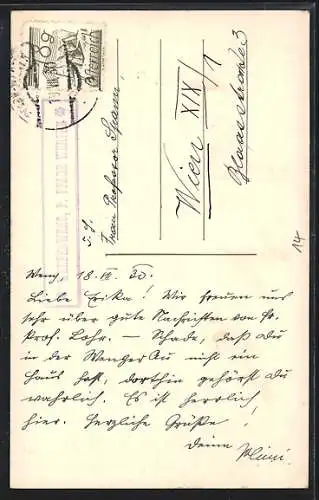 I. H.
Frau Professor Spann
Wien XIX/1
14
Weng, 18. VII. 30.
Liebe Erika! Wir freuen uns
sehr über gute Nachrichten von Fr.
Prof. Lohr. — Schade, daß du
in der Wenger Au nicht ein
Haus hast, dorthin gehörst du
wahrlich. Es ist herrlich
hier. Herzliche Grüße!
Deine